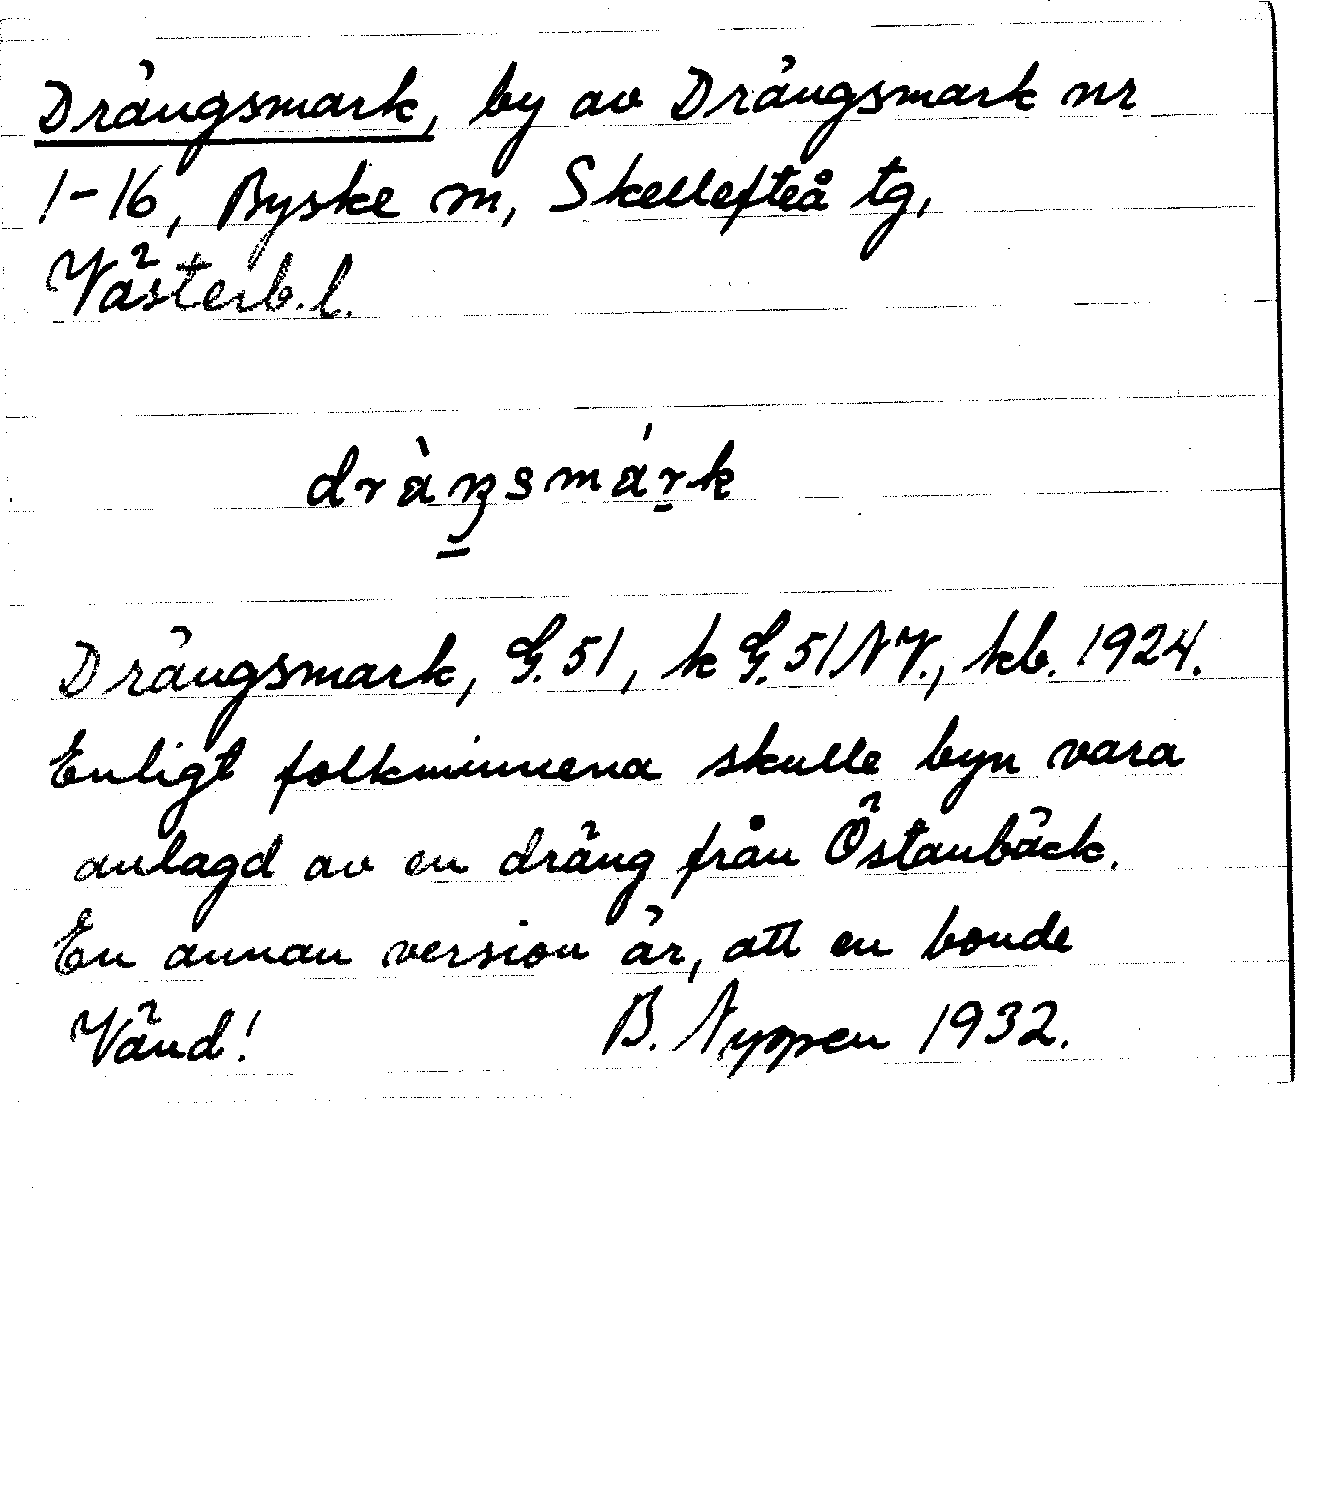 Drängsmark, by av Drängsmark nr
1-16, Byske sn, Skellefteå tg,
Västerb. l.
dràŋsmárk
Drängsmark, G. 51, k G. 51 NV., kb. 1924.
Enligt folkminnena skulle byn vara
anlagd av en dräng från Östanbäck.
En annan version är, att en bonde
Vänd! B. Nyppen 1932.